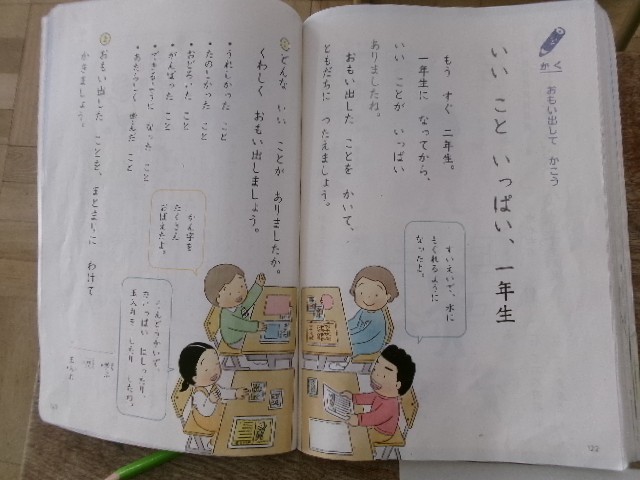 かく
おもい出して かこう
いい こと いっぱい、一年生
もう すぐ 二年生。
一年生に なってから、
いい ことが いっぱい
ありましたね。
おもい出した ことを かいて、
ともだちに つたえましょう。
すいえいで、水に
もぐれるように
なったよ。
どんな いい ことが ありましたか。
くわしく おもい出しましょう。
・うれしかった こと
・たのしかった こと
・おどろいた こと
・がんばった こと
・できるように なった こと
かん字を
たくさん
おぼえたよ。
うんどうかいで、
力いっぱい はしったり、
玉入れを したり したね。
2 おもい出した ことを、まとまりに わけて
かきましょう。
122